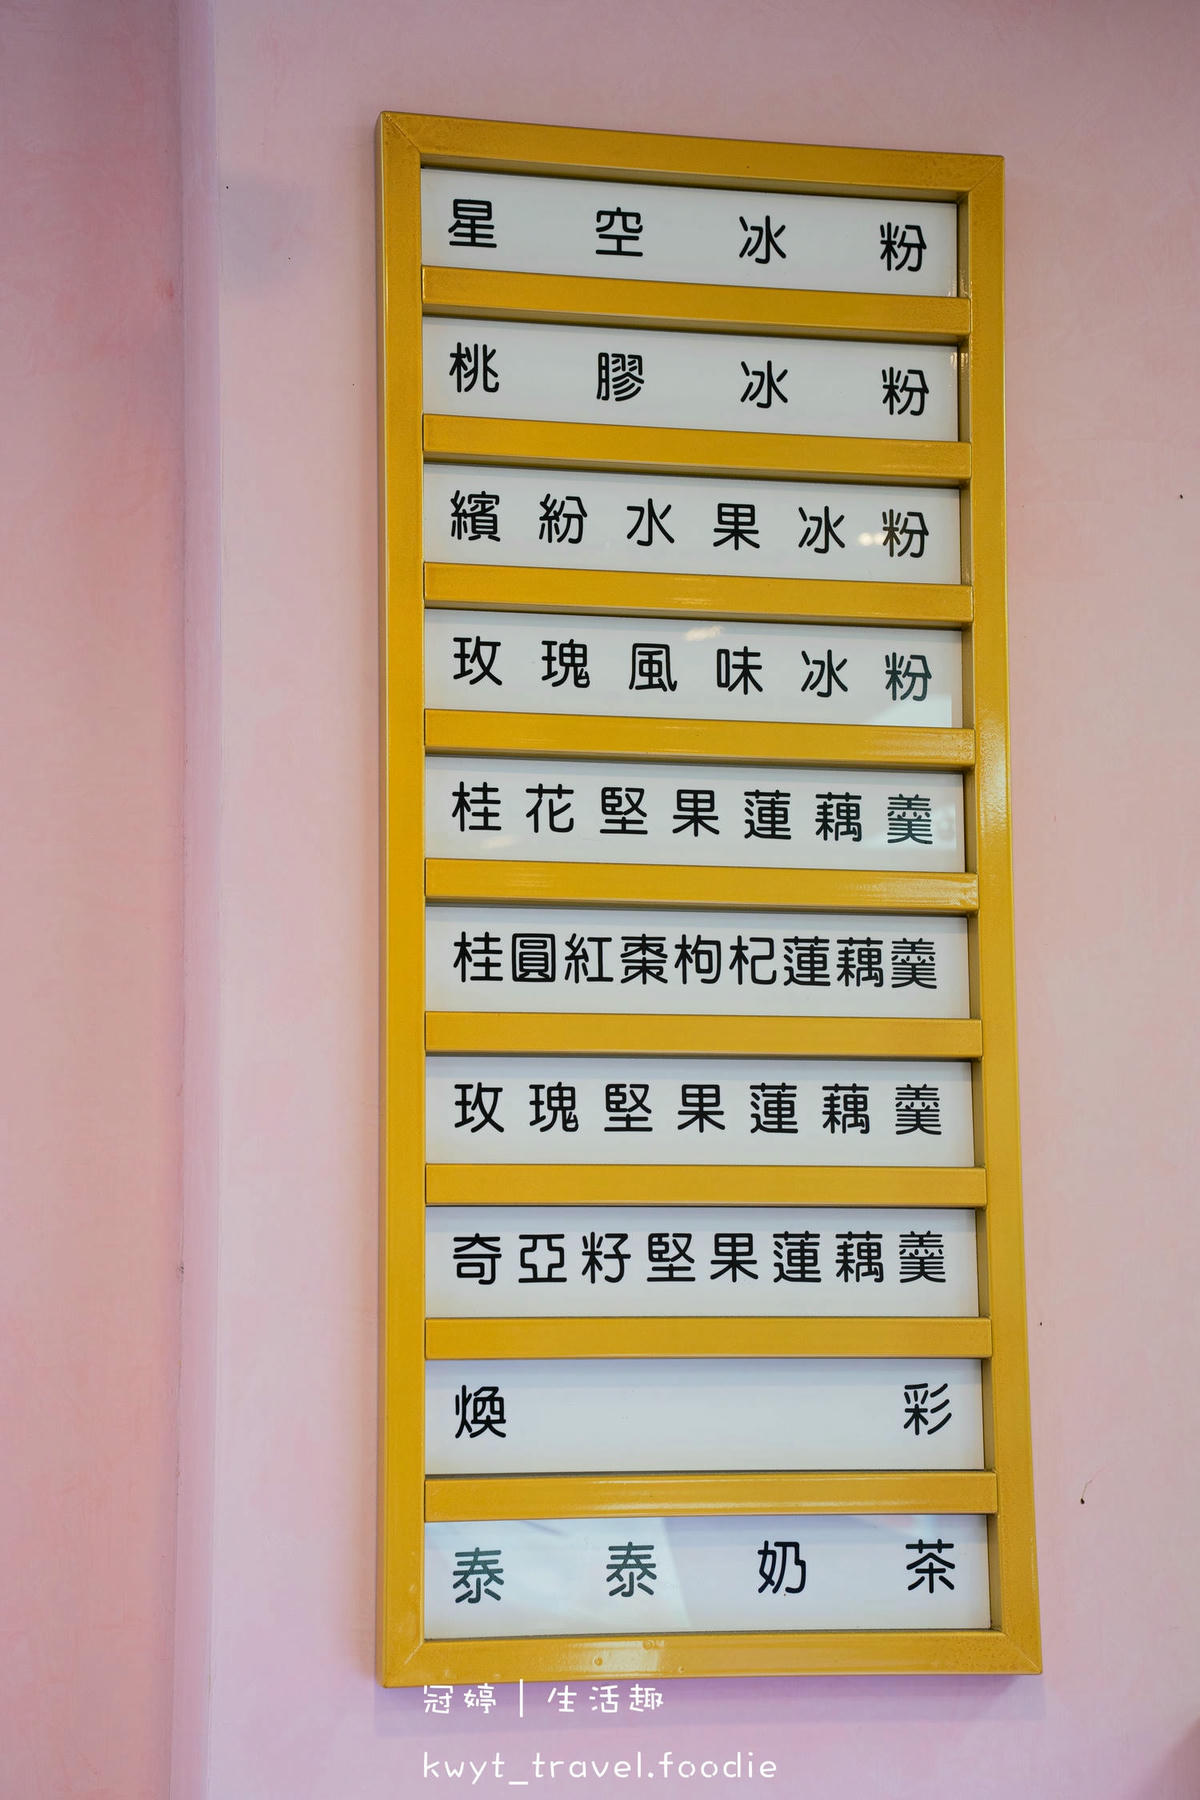 星空冰粉
桃膠冰粉
繽紛水果冰粉
玫瑰風味冰粉
桂花堅果蓮藕羹
桂圓紅棗枸杞蓮藕羹
玫瑰堅果蓮藕羹
奇亞籽堅果蓮藕羹
煥彩
泰泰奶茶
冠婷 | 生活趣
kwyt_travel.foodie